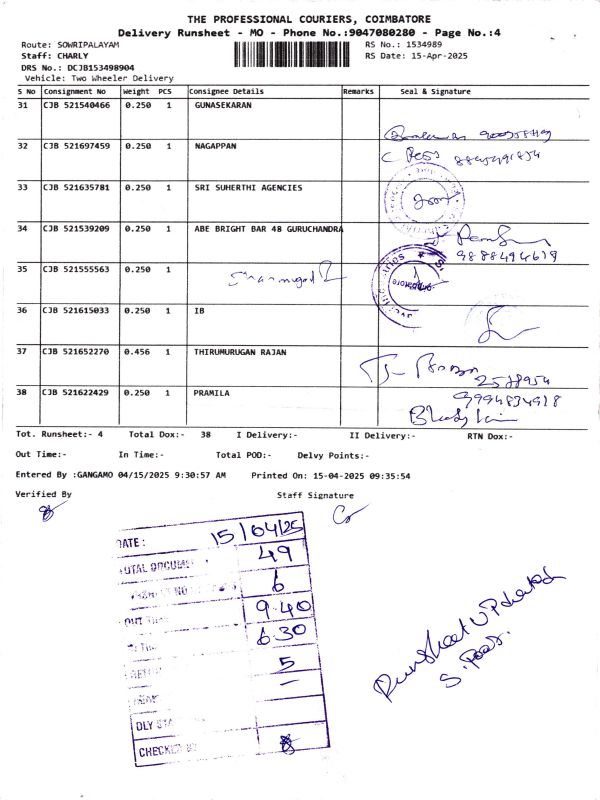 THE PROFESSIONAL COURIERS, COIMBATORE
Delivery Runsheet - MO - Phone No.:9047080280 - Page No.:4
Route: SOWRIPALAYAM RS No.: 1534989
Staff: CHARLY RS Date: 15-Apr-2025
DRS No.: DCJB153498904
Vehicle: Two Wheeler Delivery
S No Consignment No Weight PCS Consignee Details Remarks Seal & Signature
31 CJB 521540466 0.250 1 GUNASEKARAN
32 CJB 521697459 0.250 1 NAGAPPAN
33 CJB 521635781 0.250 1 SRI SUHERTHI AGENCIES
34 CJB 521539209 0.250 1 ABE BRIGHT BAR 48 GURUCHANDRA
9888494618
35 CJB 521555563 0.250 1
36 CJB 521615033 0.250 1 IB
37 CJB 521652270 0.456 1 THIRUMURUGAN RAJAN
38 CJB 521622429 0.250 1 PRAMILA
9994834918
Tot. Runsheet:- 4 Total Dox:- 38 I Delivery:- II Delivery:- RTN Dox:-
Out Time:- In Time:- Total POD:- Delvy Points:-
Entered By :GANGAMO 04/15/2025 9:30:57 AM Printed On: 15-04-2025 09:35:54
Verified By Staff Signature
DATE: 15/04/25
49
6
9.40
6.30
5
—
DLY
CHECKED
Runsheet Updated